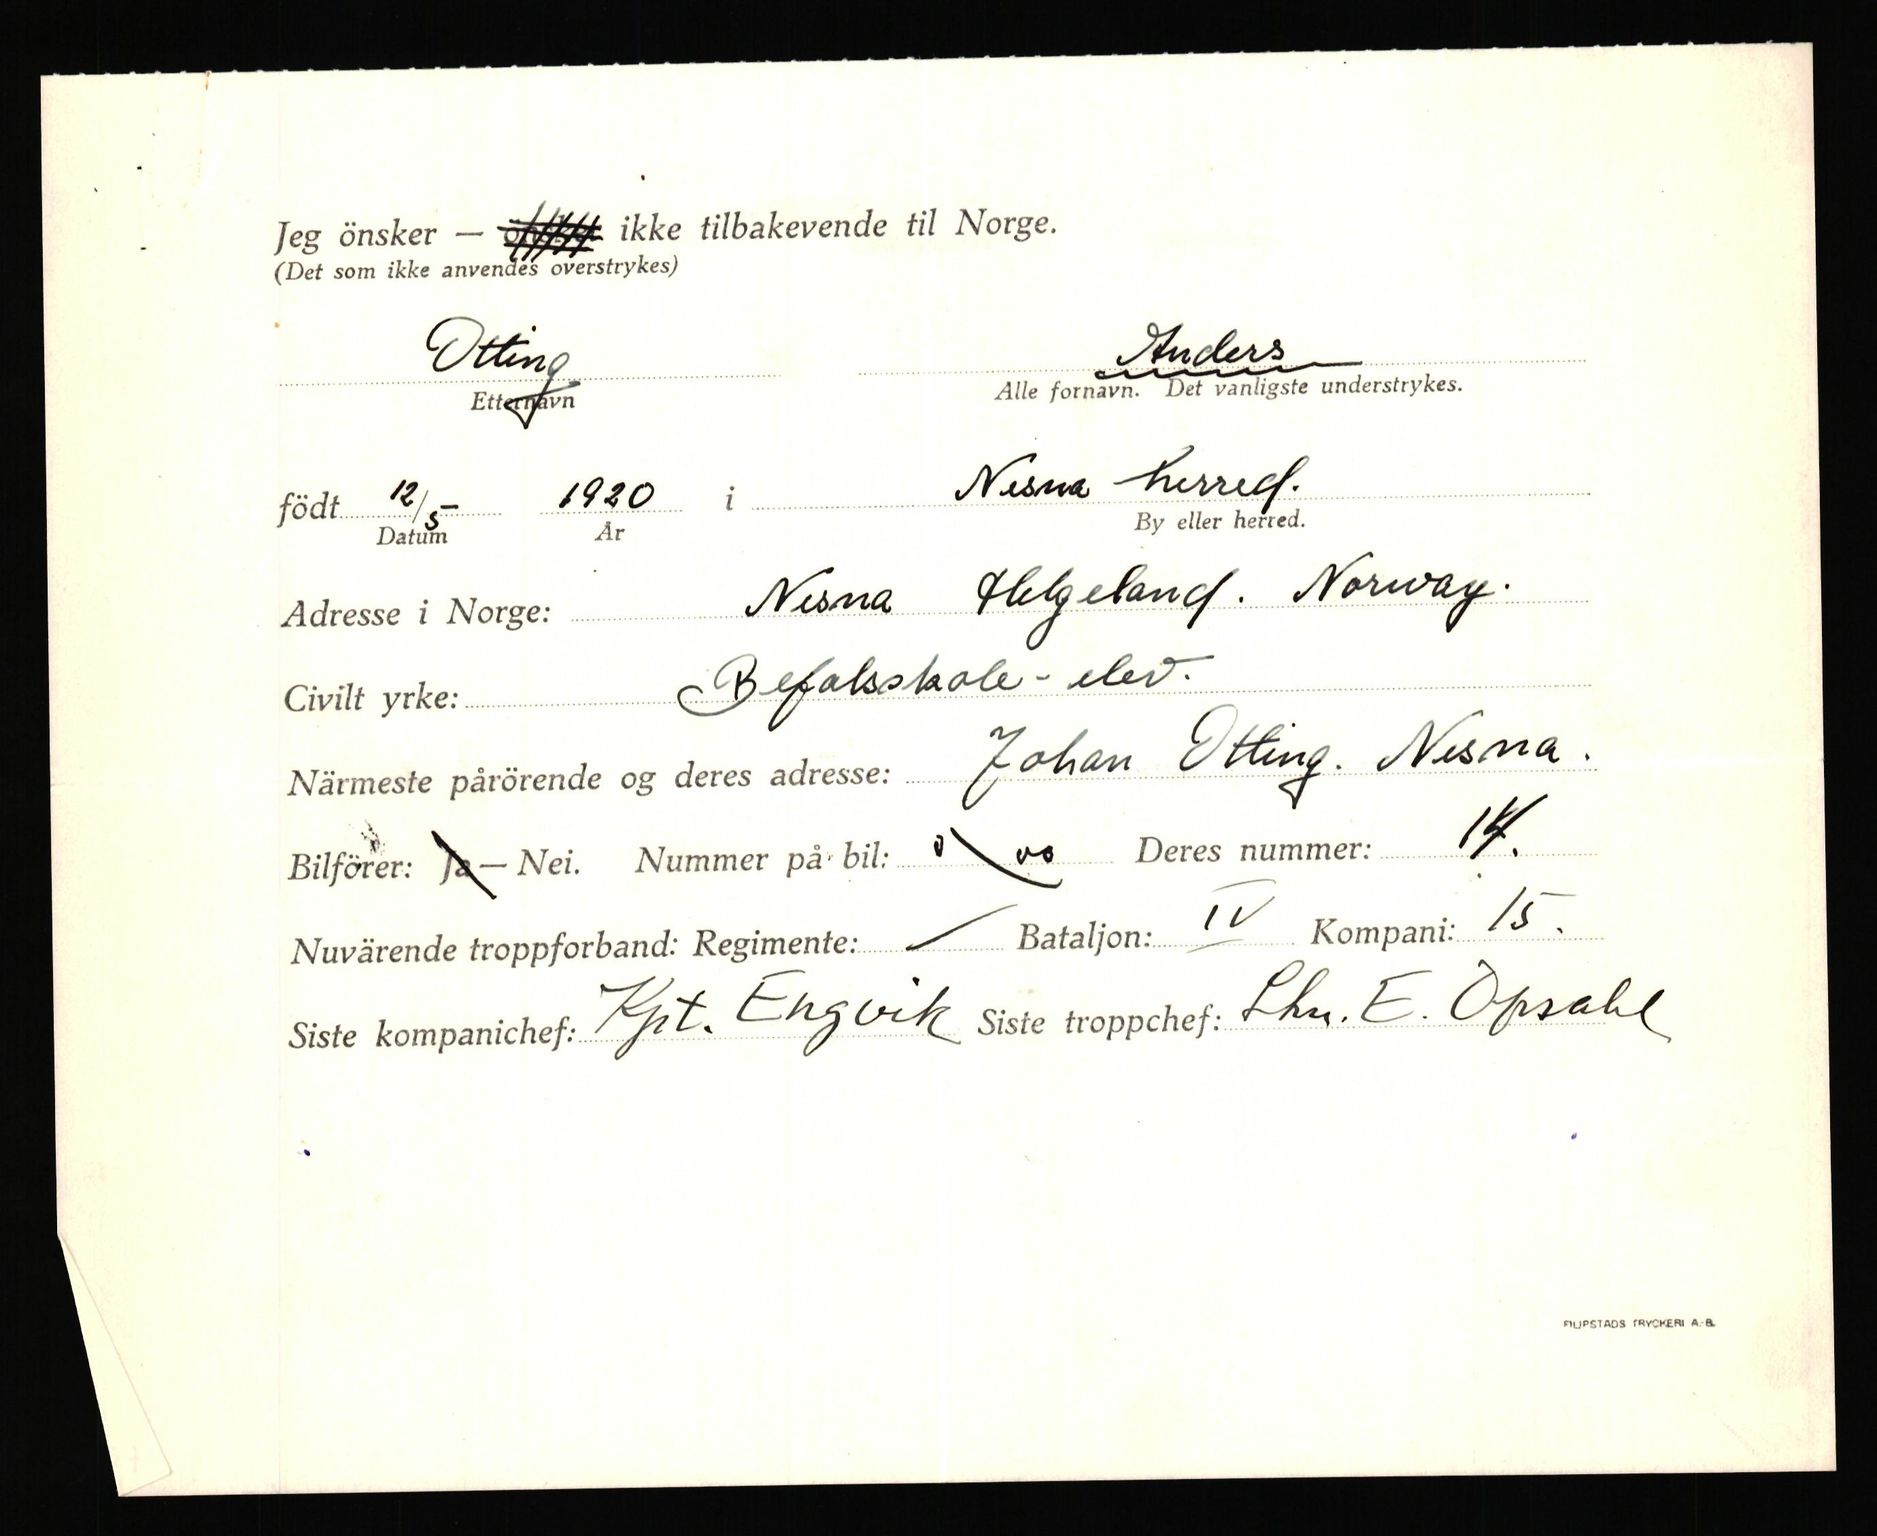 Jeg önsker — önsker ikke tilbakevende til Norge.
(Det som ikke anvendes overstrykes)
Otting Anders
Etternavn Alle fornavn. Det vanligste understrykes.
födt 12/5- 1920 i Nesna herred.
Datum År By eller herred.
Adresse i Norge: Nesna Helgeland. Norway.
Civilt yrke: Befalsskole-elev.
Närmeste pårörende og deres adresse: Johan Otting. Nesna.
Bilförer: Ja — Nei. Nummer på bil: Deres nummer: 14.
Nuvärende troppforband: Regimente: / Bataljon: IV Kompani: 15.
Siste kompanichef: Kpt. Engvik Siste troppchef: Lhn. E. Opsahl
FILIPSTADS TRYCKERI A.-B.